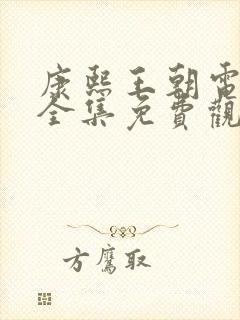 康熙王朝電
全集免費觀
方鷹取